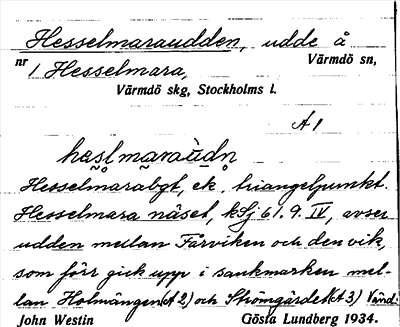 Hesselmaraudden, udde å
nr 1 Hesselmara, Värmdö sn,
Värmdö skg, Stockholms l.
A 1
hes̥lmaraùdn̥
Hesselmarabgt, ek, triangelpunkt.
Hesselmara näset, kSj 61. 9. IV, avser
udden mellan Fårviken och den vik,
som förr gick upp i sankmarken mel-
lan Holmängen (A 2) och Strömgärdet (A 3) Vänd.
John Westin Gösta Lundberg 1934.